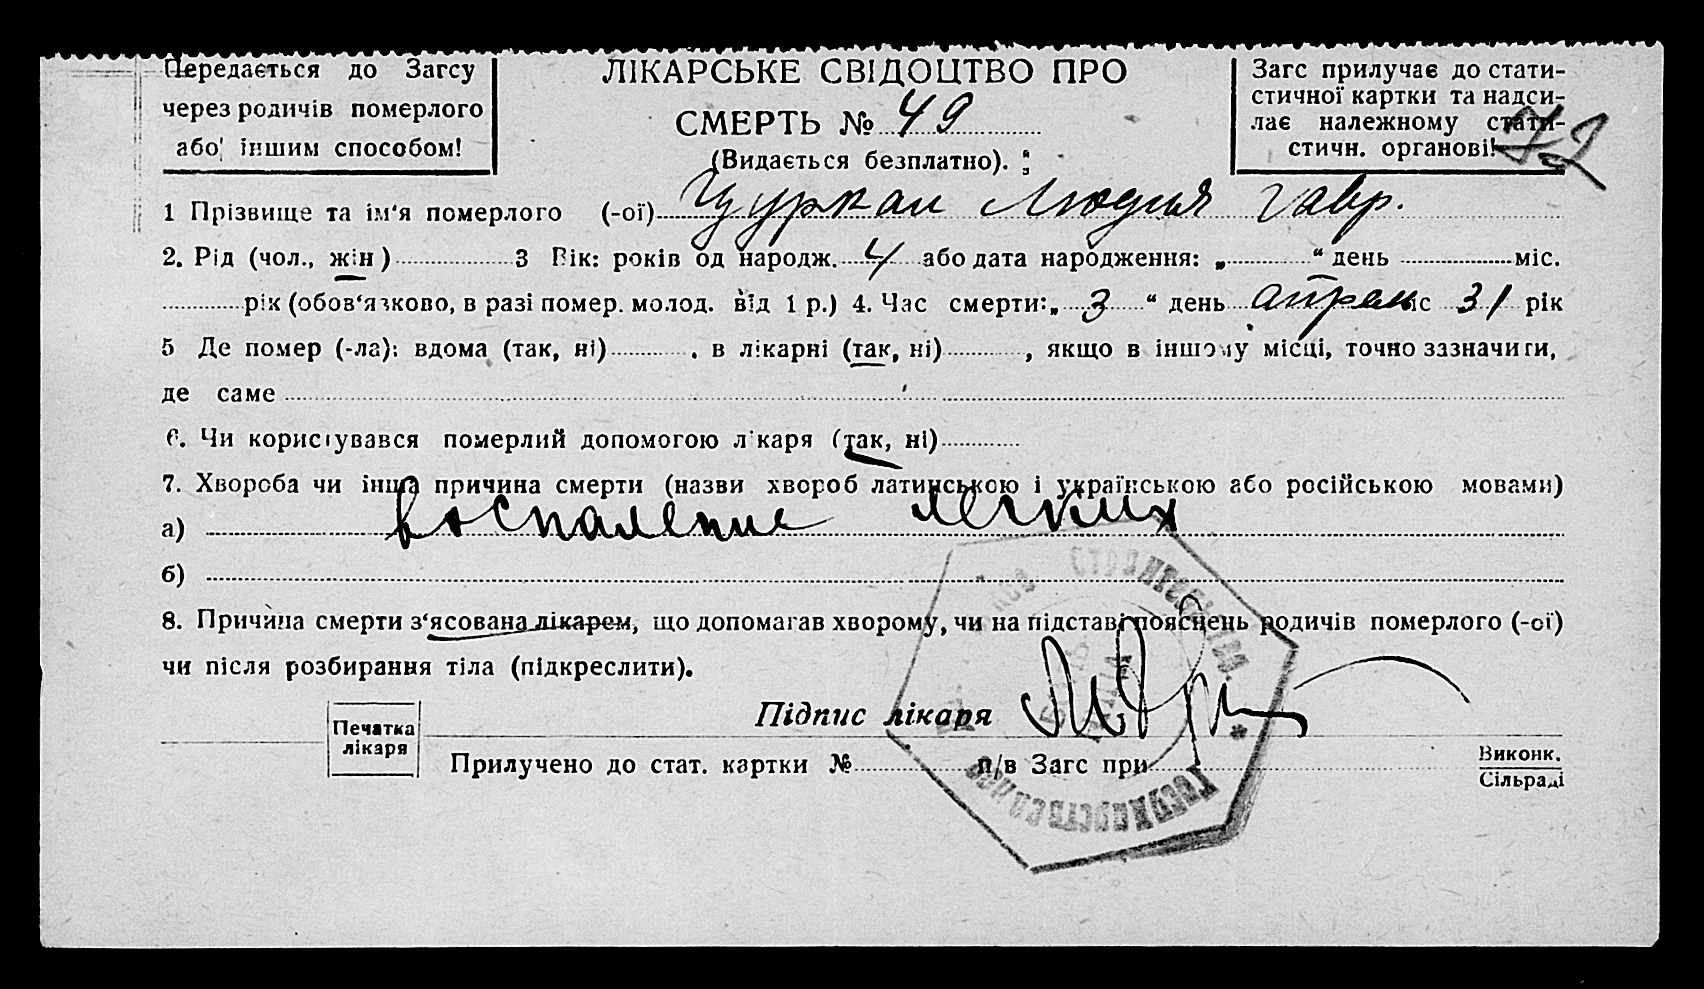 Передається до Загсу
через родичів померлого
або іншим способом!
ЛІКАРСЬКЕ СВІДОЦТВО ПРО
СМЕРТЬ № 49
(Видається безплатно).
Загс прилучає до стати-
стичної картки та надси-
лає належному стати-
стичн. органові!
72
1 Прізвище та ім'я померлого (-ої) Цуркан Людмя Гавр.
2. Рід (чол., жін) 3 Вік: років од народж. 4 або дата народження: „ “ день міс.
рік (обов'язково, в разі помер. молод. від 1 р.) 4. Час смерти: „ 3 “ день апрель міс 31 рік
5 Де помер (-ла): вдома (так, ні) , в лікарні (так, ні) , якщо в іншому місці, точно зазначити,
де саме
6. Чи користувався померлий допомогою лікаря (так, ні)
7. Хвороба чи інша причина смерти (назви хвороб латинською і українською або російською мовами)
а) воспаление легких
б)
8. Причина смерти з'ясована лікарем, що допомагав хворому, чи на підставі пояснень родичів померлого (-ої)
чи після розбирання тіла (підкреслити).
Підпис лікаря
Печатка
лікаря
Прилучено до стат. картки № п/в Загс при
Виконк.
Сільраді